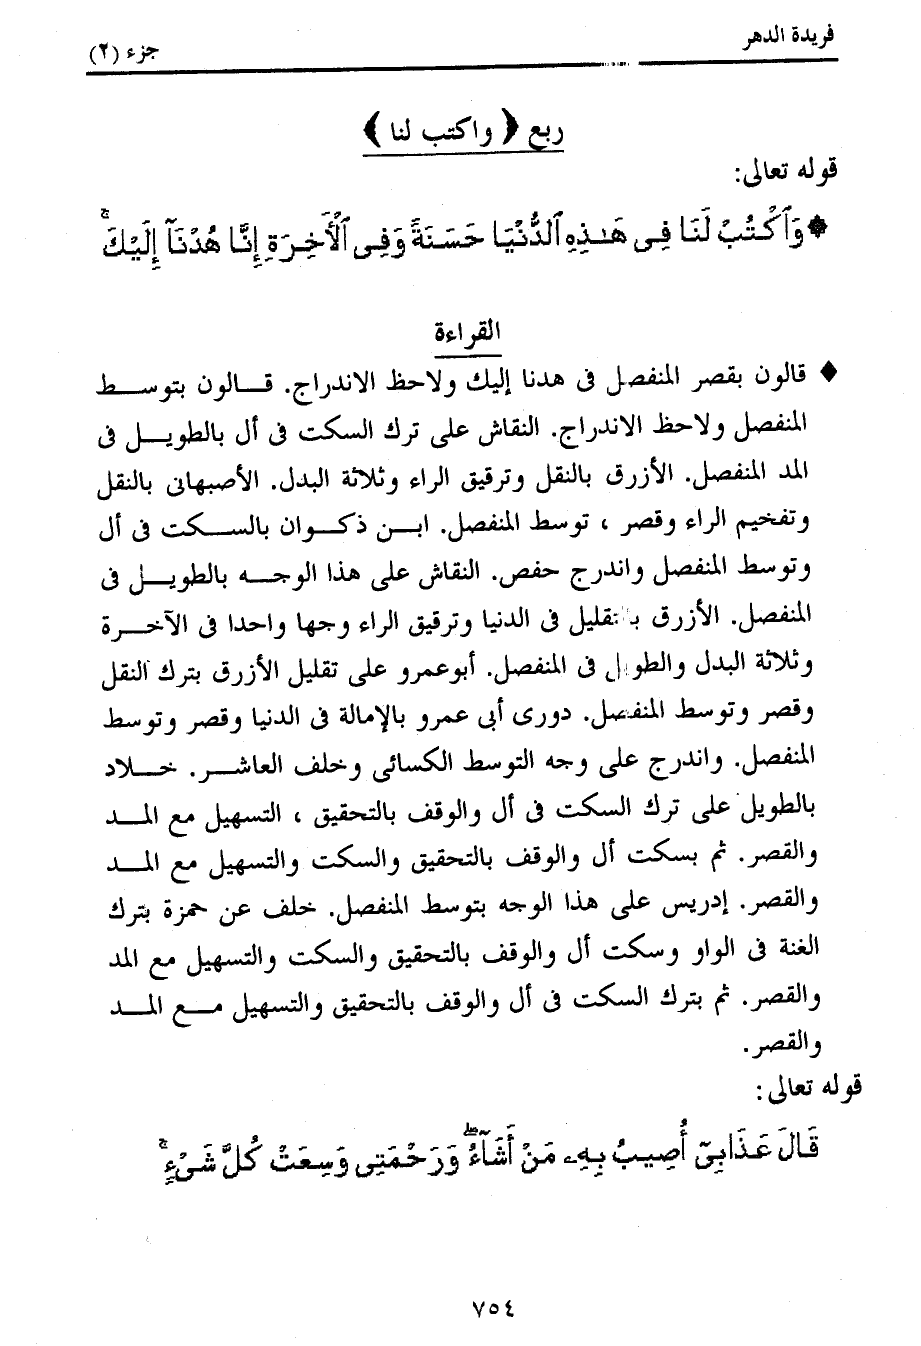 فريدة الدهر
جزء (٢)
ربع ﴿ واكتب لنا ﴾
قوله تعالى:
۞ وَٱكْتُبْ لَنَا فِى هَـٰذِهِ ٱلدُّنْيَا حَسَنَةً وَفِى ٱلْأَخِرَةِ إِنَّا هُدْنَآ إِلَيْكَ ۚ
القراءة
♦ قالون بقصر المنفصل فى هدنا إليك ولاحظ الاندراج. قـــالون بتوســـط
المنفصل ولاحظ الاندراج. النقاش على ترك السكت فى أل بالطويـــل فى
المد المنفصل. الأزرق بالنقل وترقيق الراء وثلاثة البدل. الأصبهانى بالنقل
وتفخيم الراء وقصر ، توسط المنفصل. ابـــن ذكـــوان بالســـكت فى أل
وتوسط المنفصل واندرج حفص. النقاش على هذا الوجـــه بالطويـــل فى
المنفصل. الأزرق بتقليل فى الدنيا وترقيق الراء وجها واحدا فى الآخـــرة
وثلاثة البدل والطول فى المنفصل. أبوعمرو على تقليل الأزرق بترك النقل
وقصر وتوسط المنفصل. دورى أبى عمرو بالإمالة فى الدنيا وقصر وتوسط
المنفصل. واندرج على وجه التوسط الكسائى وخلف العاشـــر. خـــلاد
بالطويل على ترك السكت فى أل والوقف بالتحقيق ، التسهيل مع المـــد
والقصر. ثم بسكت أل والوقف بالتحقيق والسكت والتسهيل مع المـــد
والقصر. إدريس على هذا الوجه بتوسط المنفصل. خلف عن حمزة بترك
الغنة فى الواو وسكت أل والوقف بالتحقيق والسكت والتسهيل مع المد
والقصر. ثم بترك السكت فى أل والوقف بالتحقيق والتسهيل مـــع المـــد
والقصر.
قوله تعالى:
قَالَ عَذَابِىٓ أُصِيبُ بِهِۦ مَنْ أَشَآءُ ۖ وَرَحْمَتِى وَسِعَتْ كُلَّ شَىْءٍ ۚ
٧٥٤